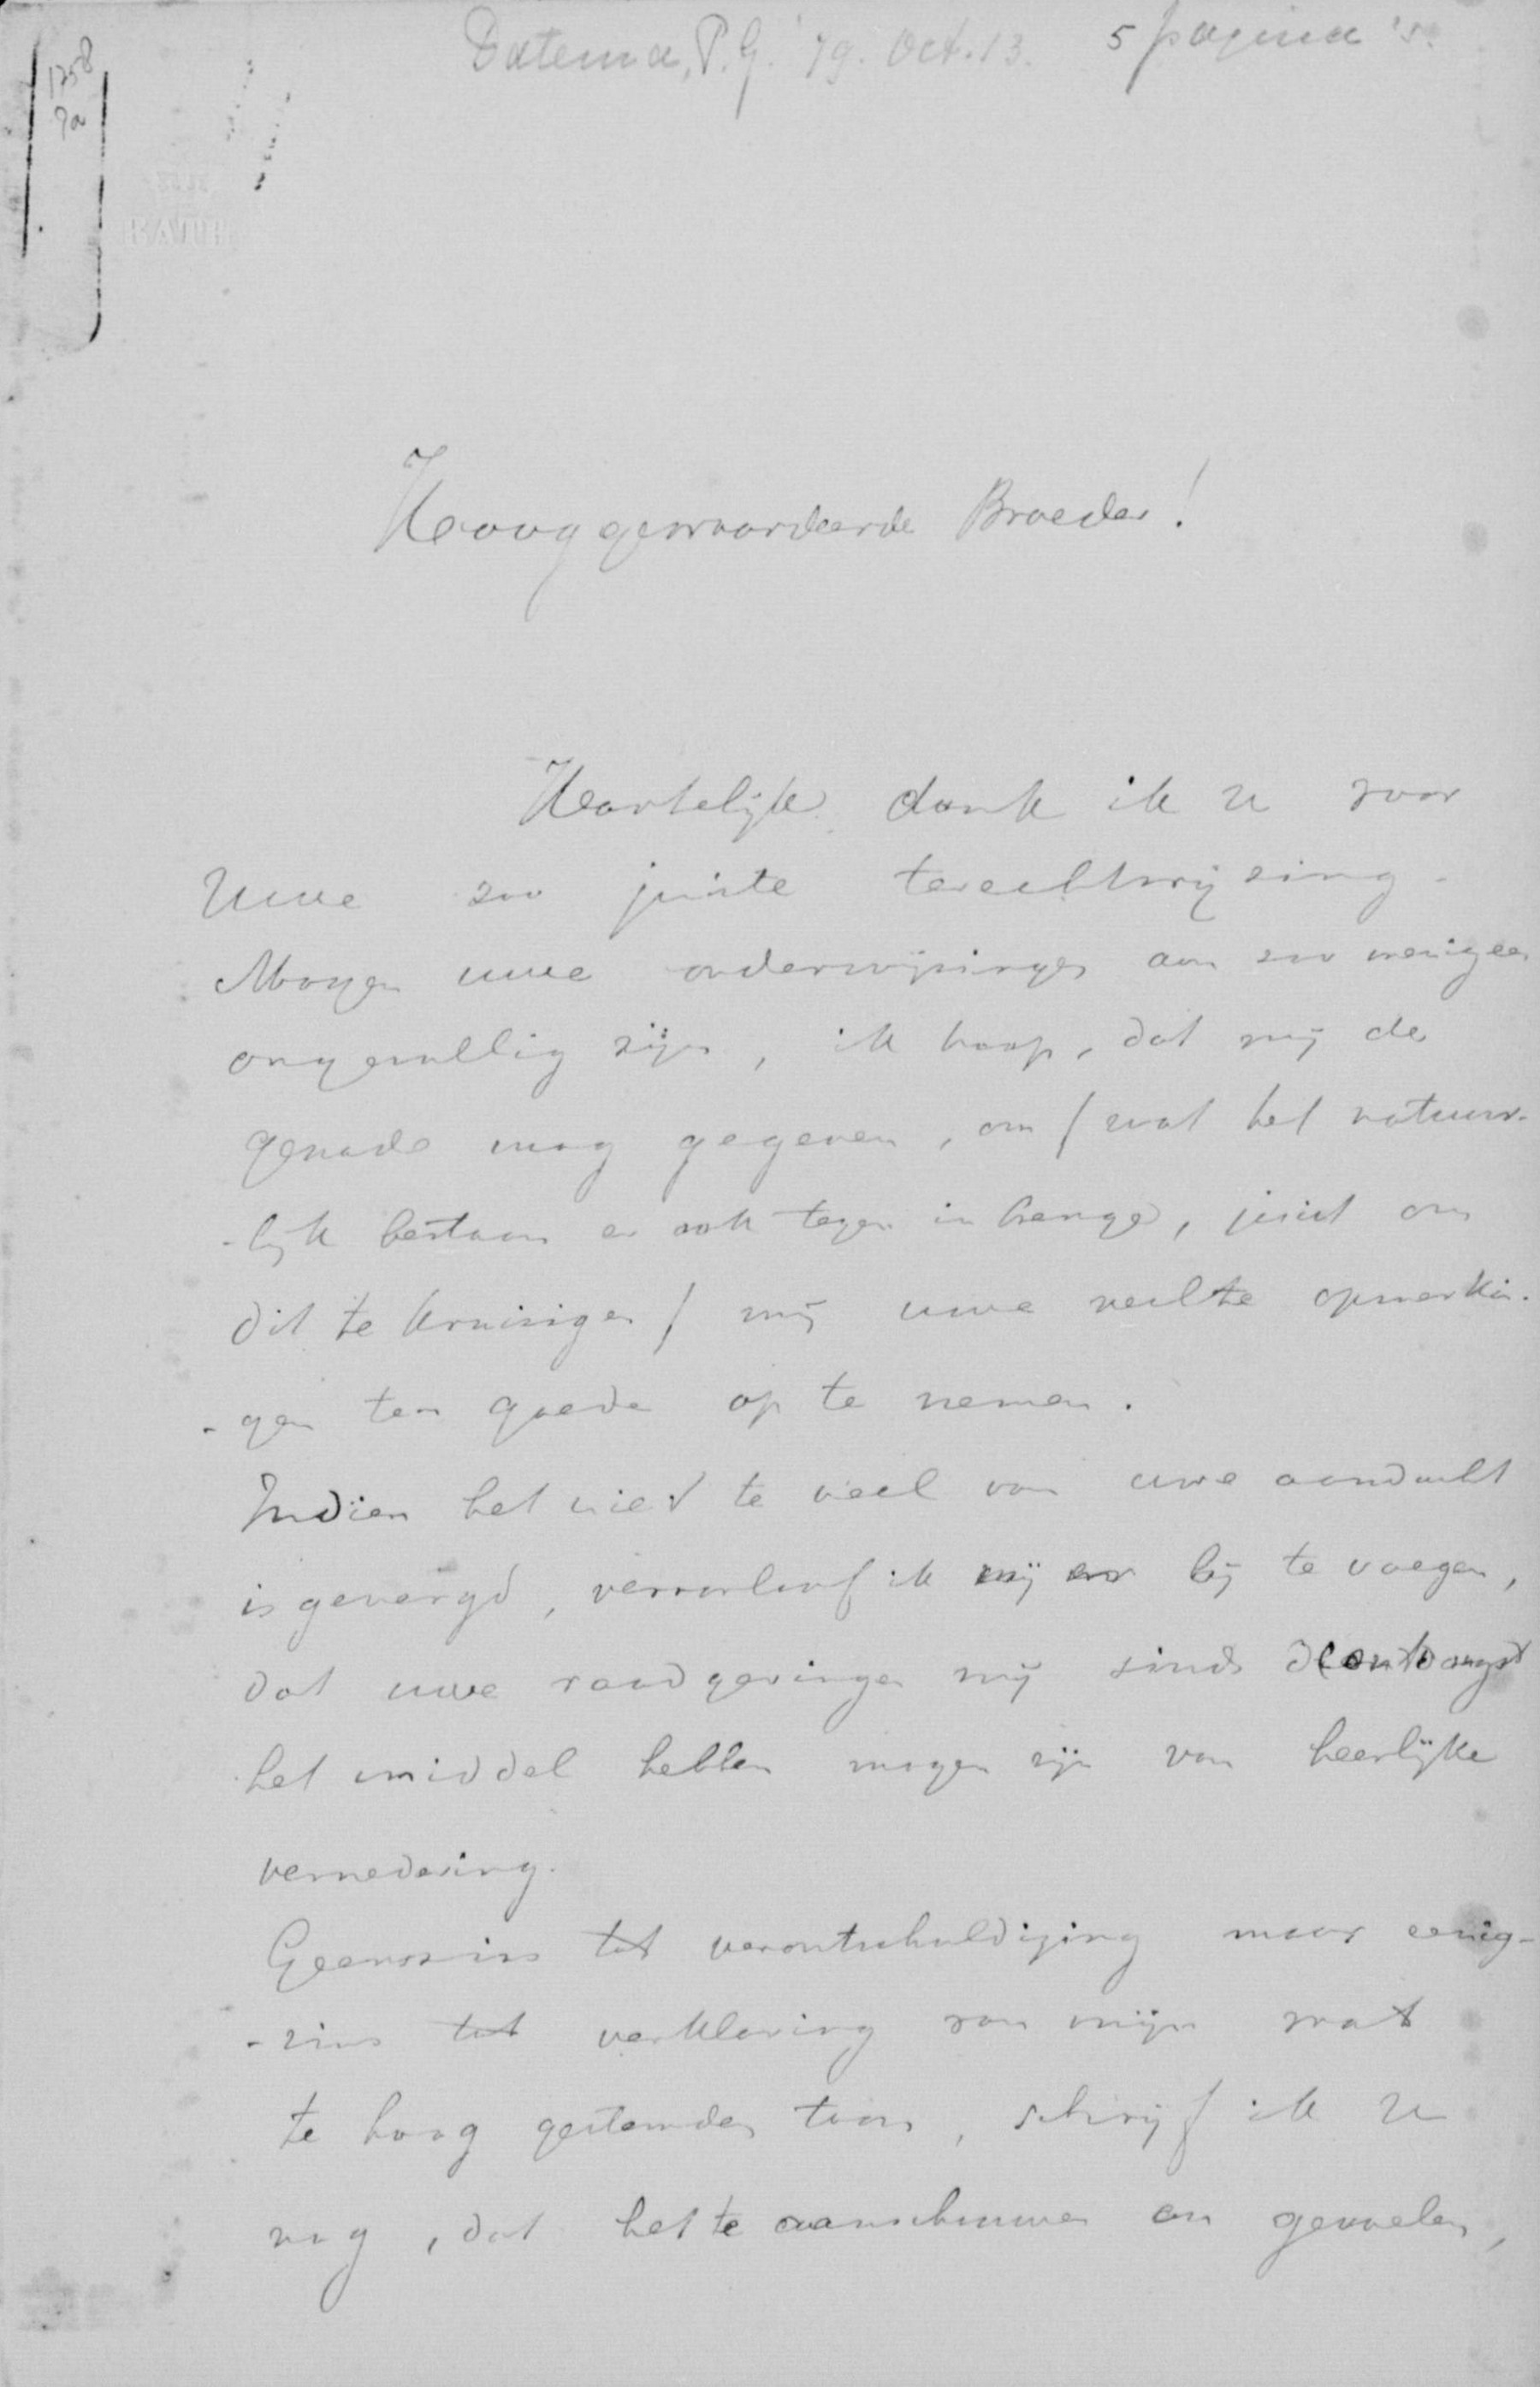 Datema, P.G. '79. Oct. 13. 5 pagina's.
1258
9a
BATH
Hooggewaardeerde Broeder!
Hartelijk dank ik U voor
Uwe zoo juiste terechtwijzing.
Mogen uwe onderwijzingen aan zoo menigeen
ongevallig zijn, ik hoop, dat mij de
genade mog gegeven, om / wat het natuur-
-lijk bestaan er ook tegen in brenge, juist om
dit te kruisigen / mij uwe opmerkin-
-gen ten goede op te nemen.
Indien het niet te veel van uwe aandacht
is gevergd, veroorloof ik mij er bij te voegen,
dat uwe raadgevingen mij sinds de ontvangst
het middel hebben mogen zijn van heerlijke
vernedering.
Geenszins tot verontschuldiging maar eenig-
-zins tot verklaring van mijn wat
te hoog gestemden toon, schrijf ik U
nog, dat het te aanschouwen en gevoelen,